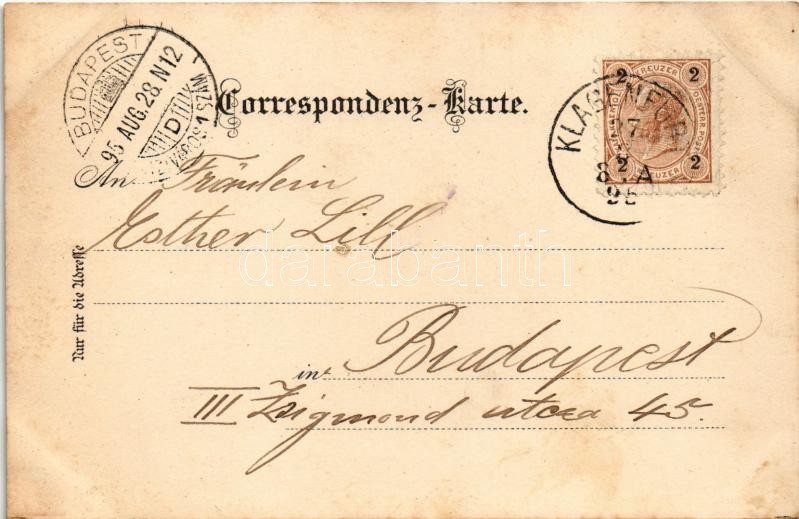 BUDAPEST
95 AUG. 28. N12
D
1 SZÁM
Correspondenz-Karte.
2 KREUZER 2
2 KREUZER 2
KLAGENFURT
27
8 A
95
An Fräulein
Esther Lill
darabanth
Nur für die Adresse
in Budapest
III Zsigmond utcza 45.